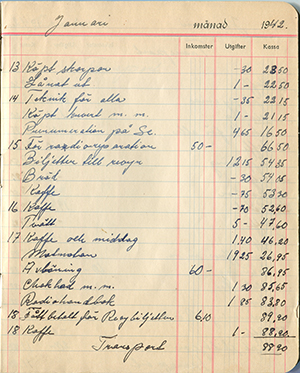 Januari månad 1942.
Inkomster Utgifter Kassa
13 Köpt skorpor -30 23 50
Lånat ut 1- 22 50
14 Teknik för alla -35 22,15
Köpt m. m. 1- 21,15
Prenumeration på Se. 4 65 16 50
15 För radioreparation 50- 66 50
Biljetter till revyn 12 15 54 35
Bröd -30 54,05
Kaffe -75 53,30
16 Kaffe -70 52,60
Tvätt 5- 47,60
17 Kaffe och middag 1,40 46,20
19 25 26,95
Avlöning 60- 86,95
m. m. 1 30 85,65
Radiohandbok 1 85 83,80
18 Fått betalt för Revybiljetter 6 10 89,90
18 Kaffe 1- 88,90
Transport 88 90